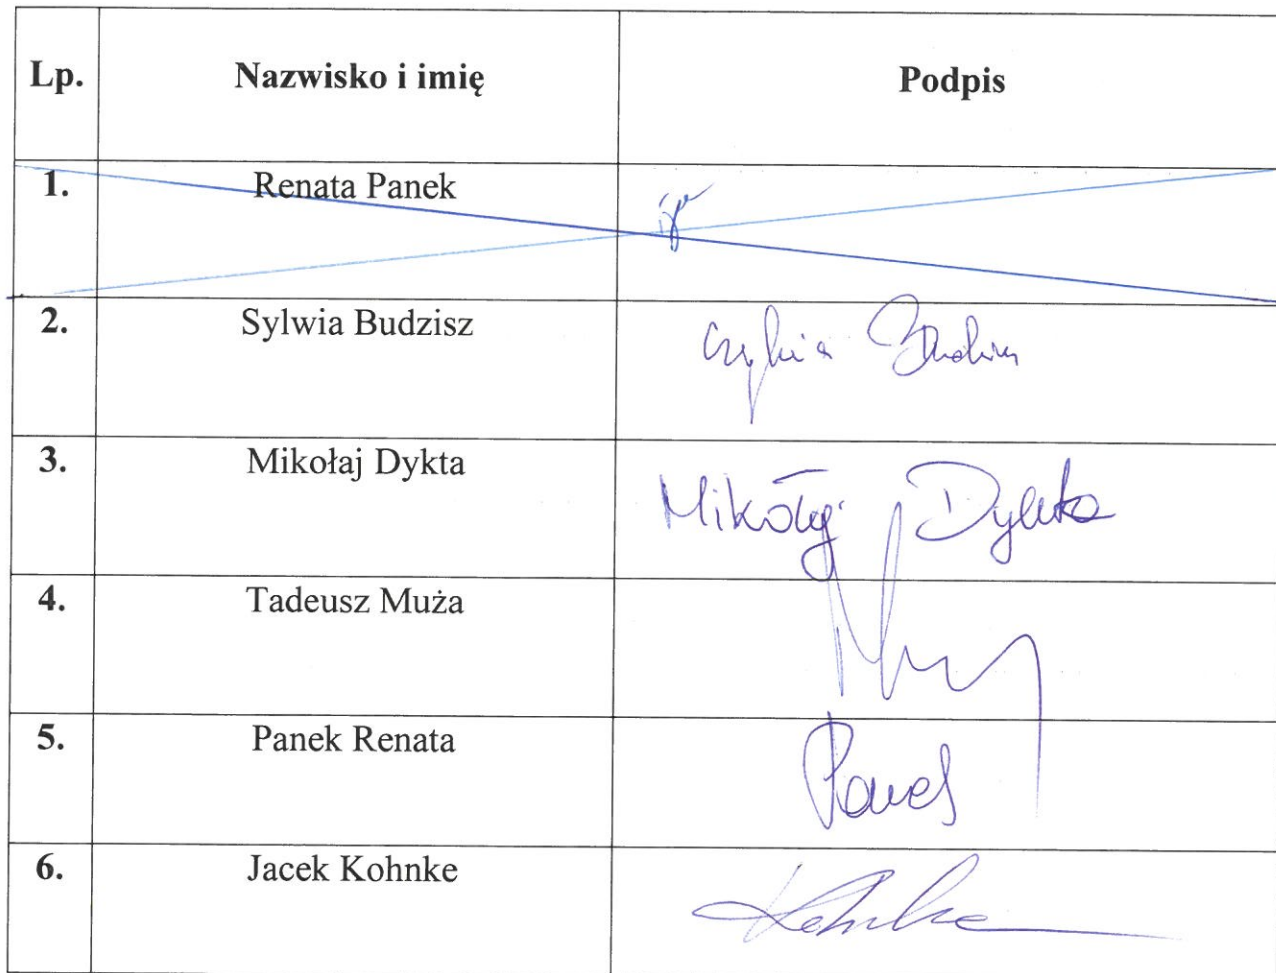 Lp. Nazwisko i imię Podpis
1. Renata Panek
2. Sylwia Budzisz Sylwia Budzisz
3. Mikołaj Dykta Mikołaj Dykta
4. Tadeusz Muża
5. Panek Renata Panek
6. Jacek Kohnke Kohnke